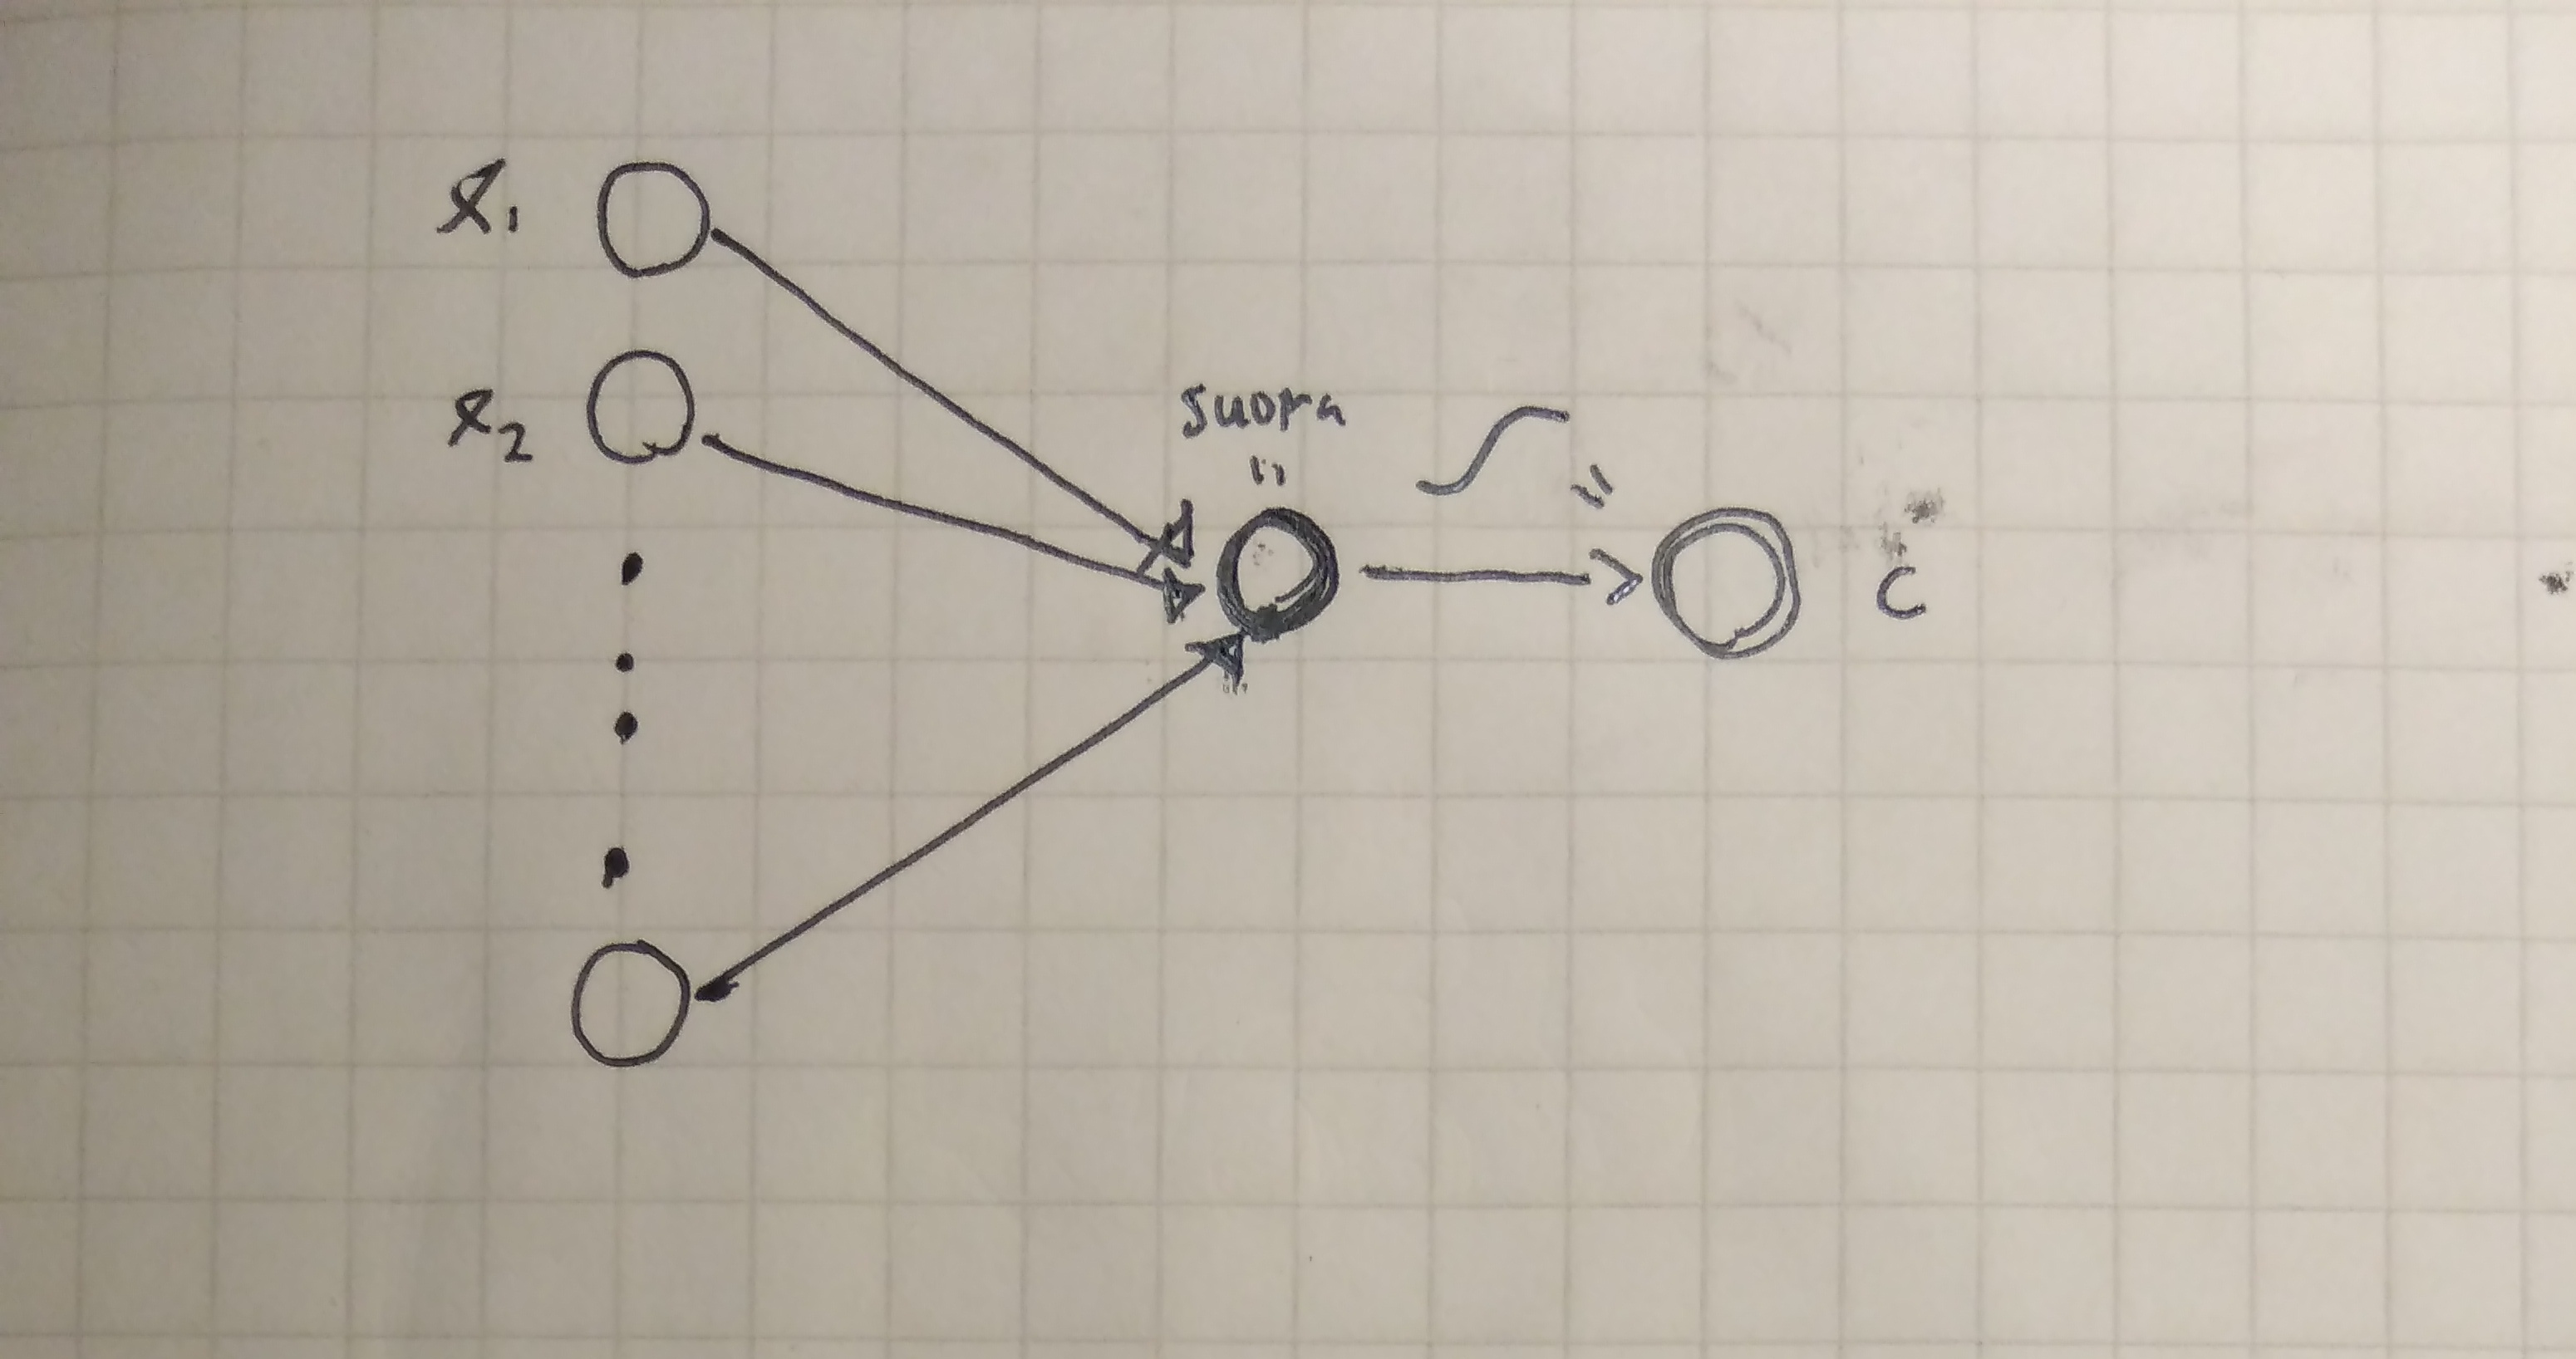 x₁
x₂
suora
C